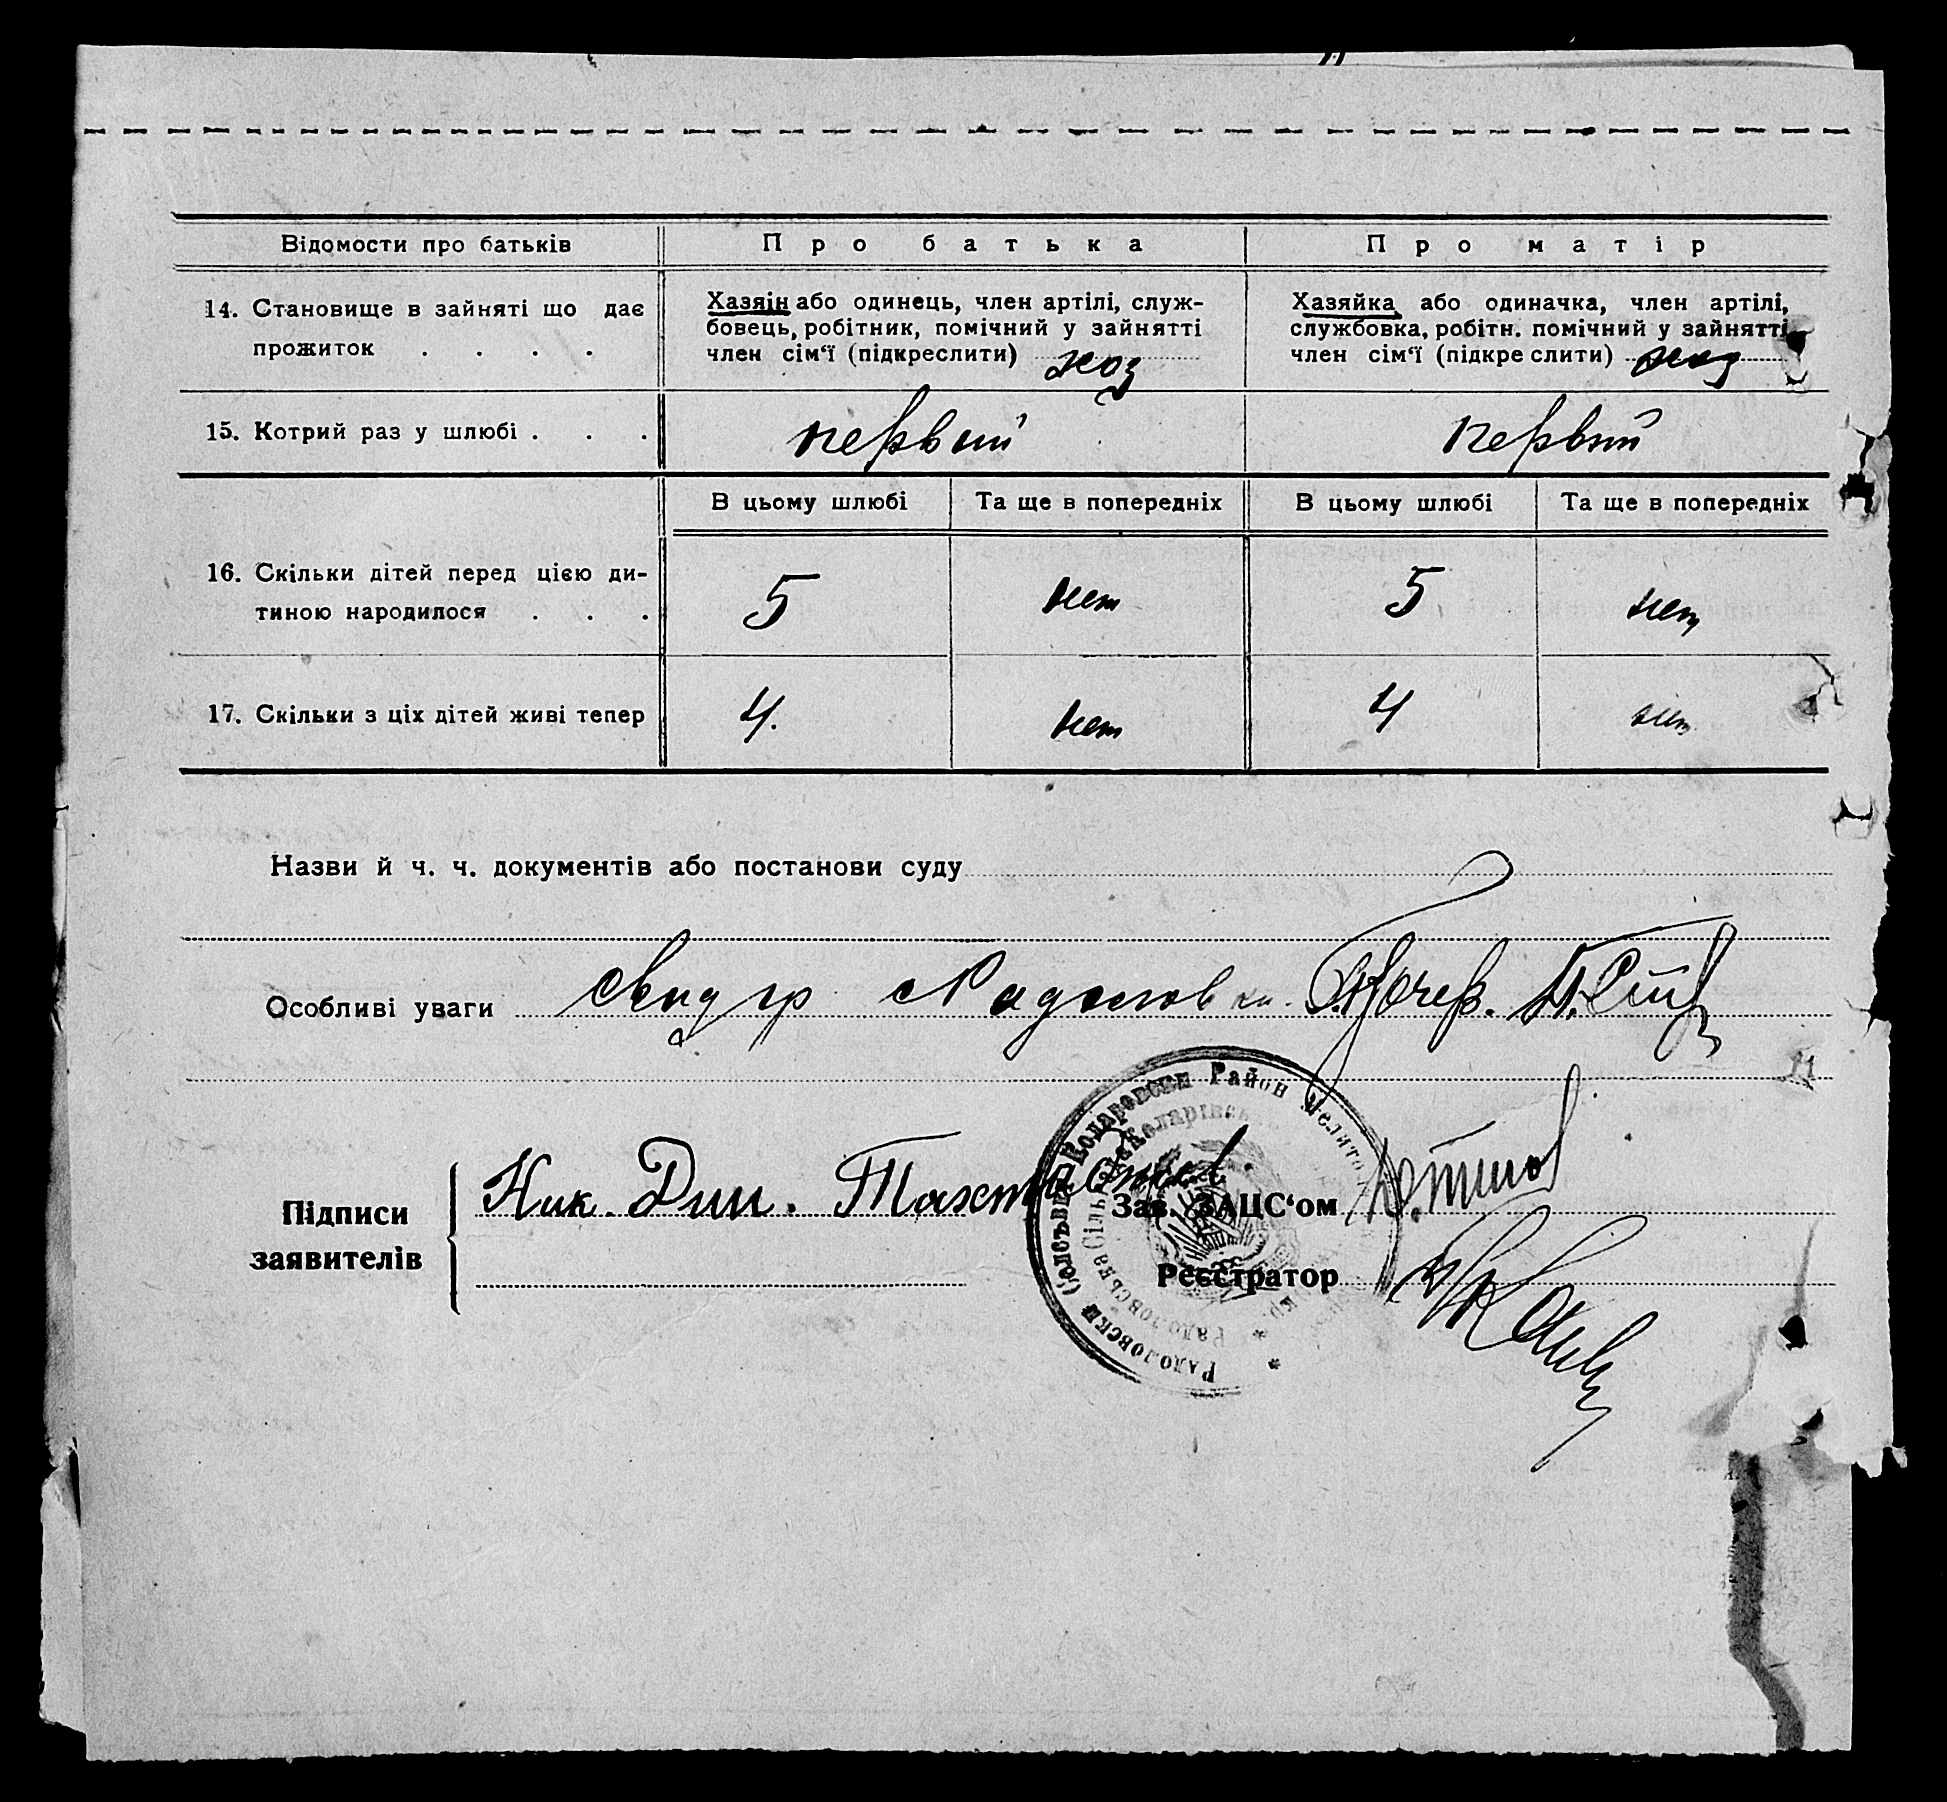 Відомости про батьків Про батька Про матір
14. Становище в зайняті що дає прожиток . . . .
Хазяін або одинець, член артілі, служ-
бовець, робітник, помічний у зайнятті
член сім‘ї (підкреслити) хоз
Хазяйка або одиначка, член артілі,
службовка, робітн. помічний у зайнятті
член сім‘ї (підкре слити) хоз
15. Котрий раз у шлюбі . . . первий первий
В цьому шлюбі Та ще в попередніх В цьому шлюбі Та ще в попередніх
16. Скільки дітей перед цією ди-
тиною народилося . . . 5 нет 5 нет
17. Скільки з ціх дітей живі тепер 4. нет 4 нет
Назви й ч. ч. документів або постанови суду
Особливі уваги
Підписи
заявителів
Ник. Дим.
Зав. ЗАЦС‘ом
Реєстратор
Район